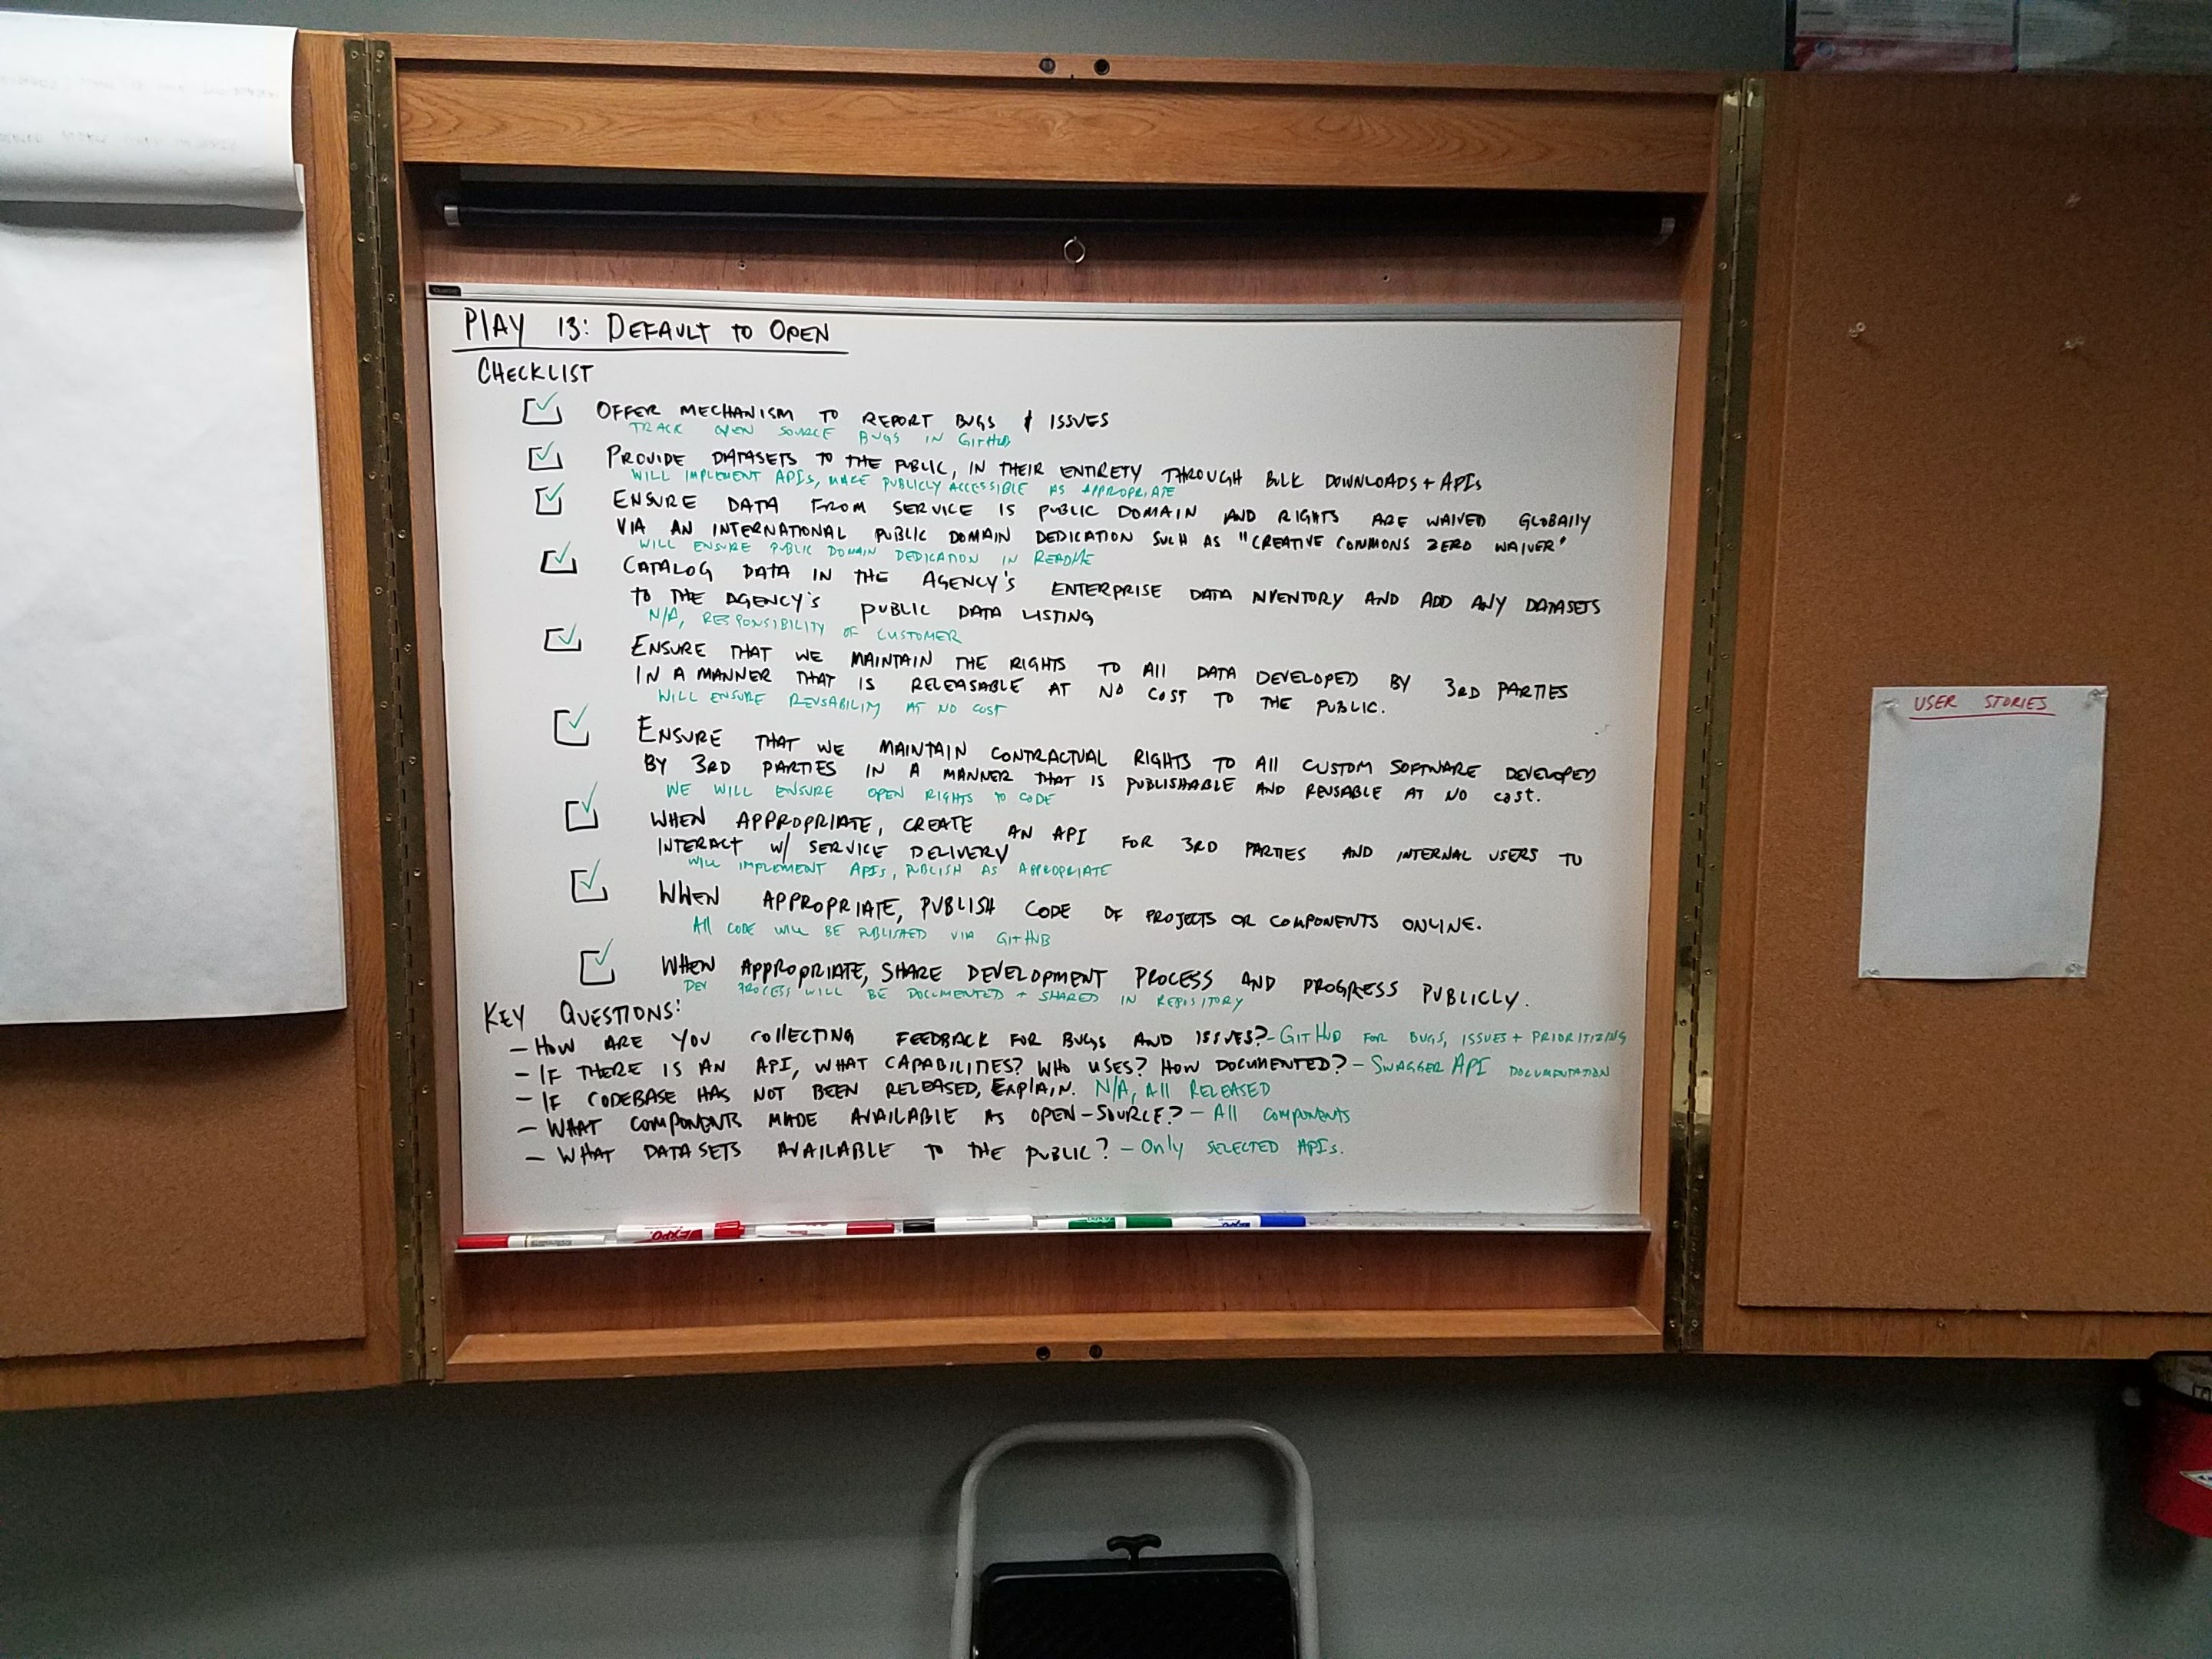 PLAY 13: DEFAULT TO OPEN
CHECKLIST
OFFER MECHANISM TO REPORT BUGS & ISSUES
TRACK OPEN SOURCE BUGS IN GITHUB
PROVIDE DATASETS TO THE PUBLIC, IN THEIR ENTIRETY THROUGH BULK DOWNLOADS + APIs
WILL IMPLEMENT APIs, MAKE PUBLICLY ACCESSIBLE AS APPROPRIATE
ENSURE DATA FROM SERVICE IS PUBLIC DOMAIN AND RIGHTS ARE WAIVED GLOBALLY
VIA AN INTERNATIONAL PUBLIC DOMAIN DEDICATION SUCH AS "CREATIVE COMMONS ZERO WAIVER"
WILL ENSURE PUBLIC DOMAIN DEDICATION IN README
CATALOG DATA IN THE AGENCY'S ENTERPRISE DATA INVENTORY AND ADD ANY DATASETS
TO THE AGENCY'S PUBLIC DATA LISTING
N/A, RESPONSIBILITY OF CUSTOMER
ENSURE THAT WE MAINTAIN THE RIGHTS TO All DATA DEVELOPED BY 3RD PARTIES
IN A MANNER THAT IS RELEASABLE AT NO COST TO THE PUBLIC.
WILL ENSURE REUSABILITY AT NO COST
ENSURE THAT WE MAINTAIN CONTRACTUAL RIGHTS TO All CUSTOM SOFTWARE DEVELOPED
BY 3RD PARTIES IN A MANNER THAT IS PUBLISHABLE AND REUSABLE AT NO COST.
WE WILL ENSURE OPEN RIGHTS TO CODE
WHEN APPROPRIATE, CREATE AN API FOR 3RD PARTIES AND INTERNAL USERS TO
INTERACT W/ SERVICE DELIVERY
WILL IMPLEMENT APIs, PUBLISH AS APPROPRIATE
WHEN APPROPRIATE, PUBLISH CODE OF PROJECTS OR COMPONENTS ONLINE.
All CODE WILL BE PUBLISHED VIA GITHUB
WHEN APPROPRIATE, SHARE DEVELOPMENT PROCESS AND PROGRESS PUBLICLY.
DEV PROCESS WILL BE DOCUMENTED + SHARED IN REPOSITORY
KEY QUESTIONS:
- HOW ARE YOU COLLECTING FEEDBACK FOR BUGS AND ISSUES? - GITHUB FOR BUGS, ISSUES + PRIORITIZING
- IF THERE IS AN API, WHAT CAPABILITIES? WHO USES? HOW DOCUMENTED? - SWAGGER API DOCUMENTATION
- IF CODEBASE HAS NOT BEEN RELEASED, EXPLAIN. N/A, All RELEASED
- WHAT COMPONENTS MADE AVAILABLE AS OPEN-SOURCE? - All COMPONENTS
- WHAT DATASETS AVAILABLE TO THE PUBLIC? - Only SELECTED APIs.
USER STORIES
EXPO